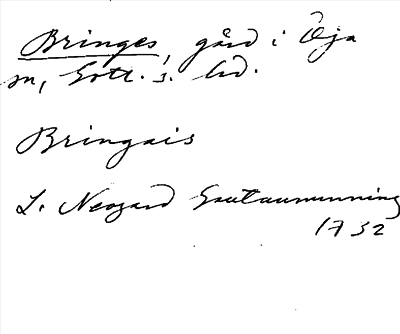 Bringes, gård i Öja
sn, Gotl. s. hd.
Bringais
L. Neogard Gautauminning
1732